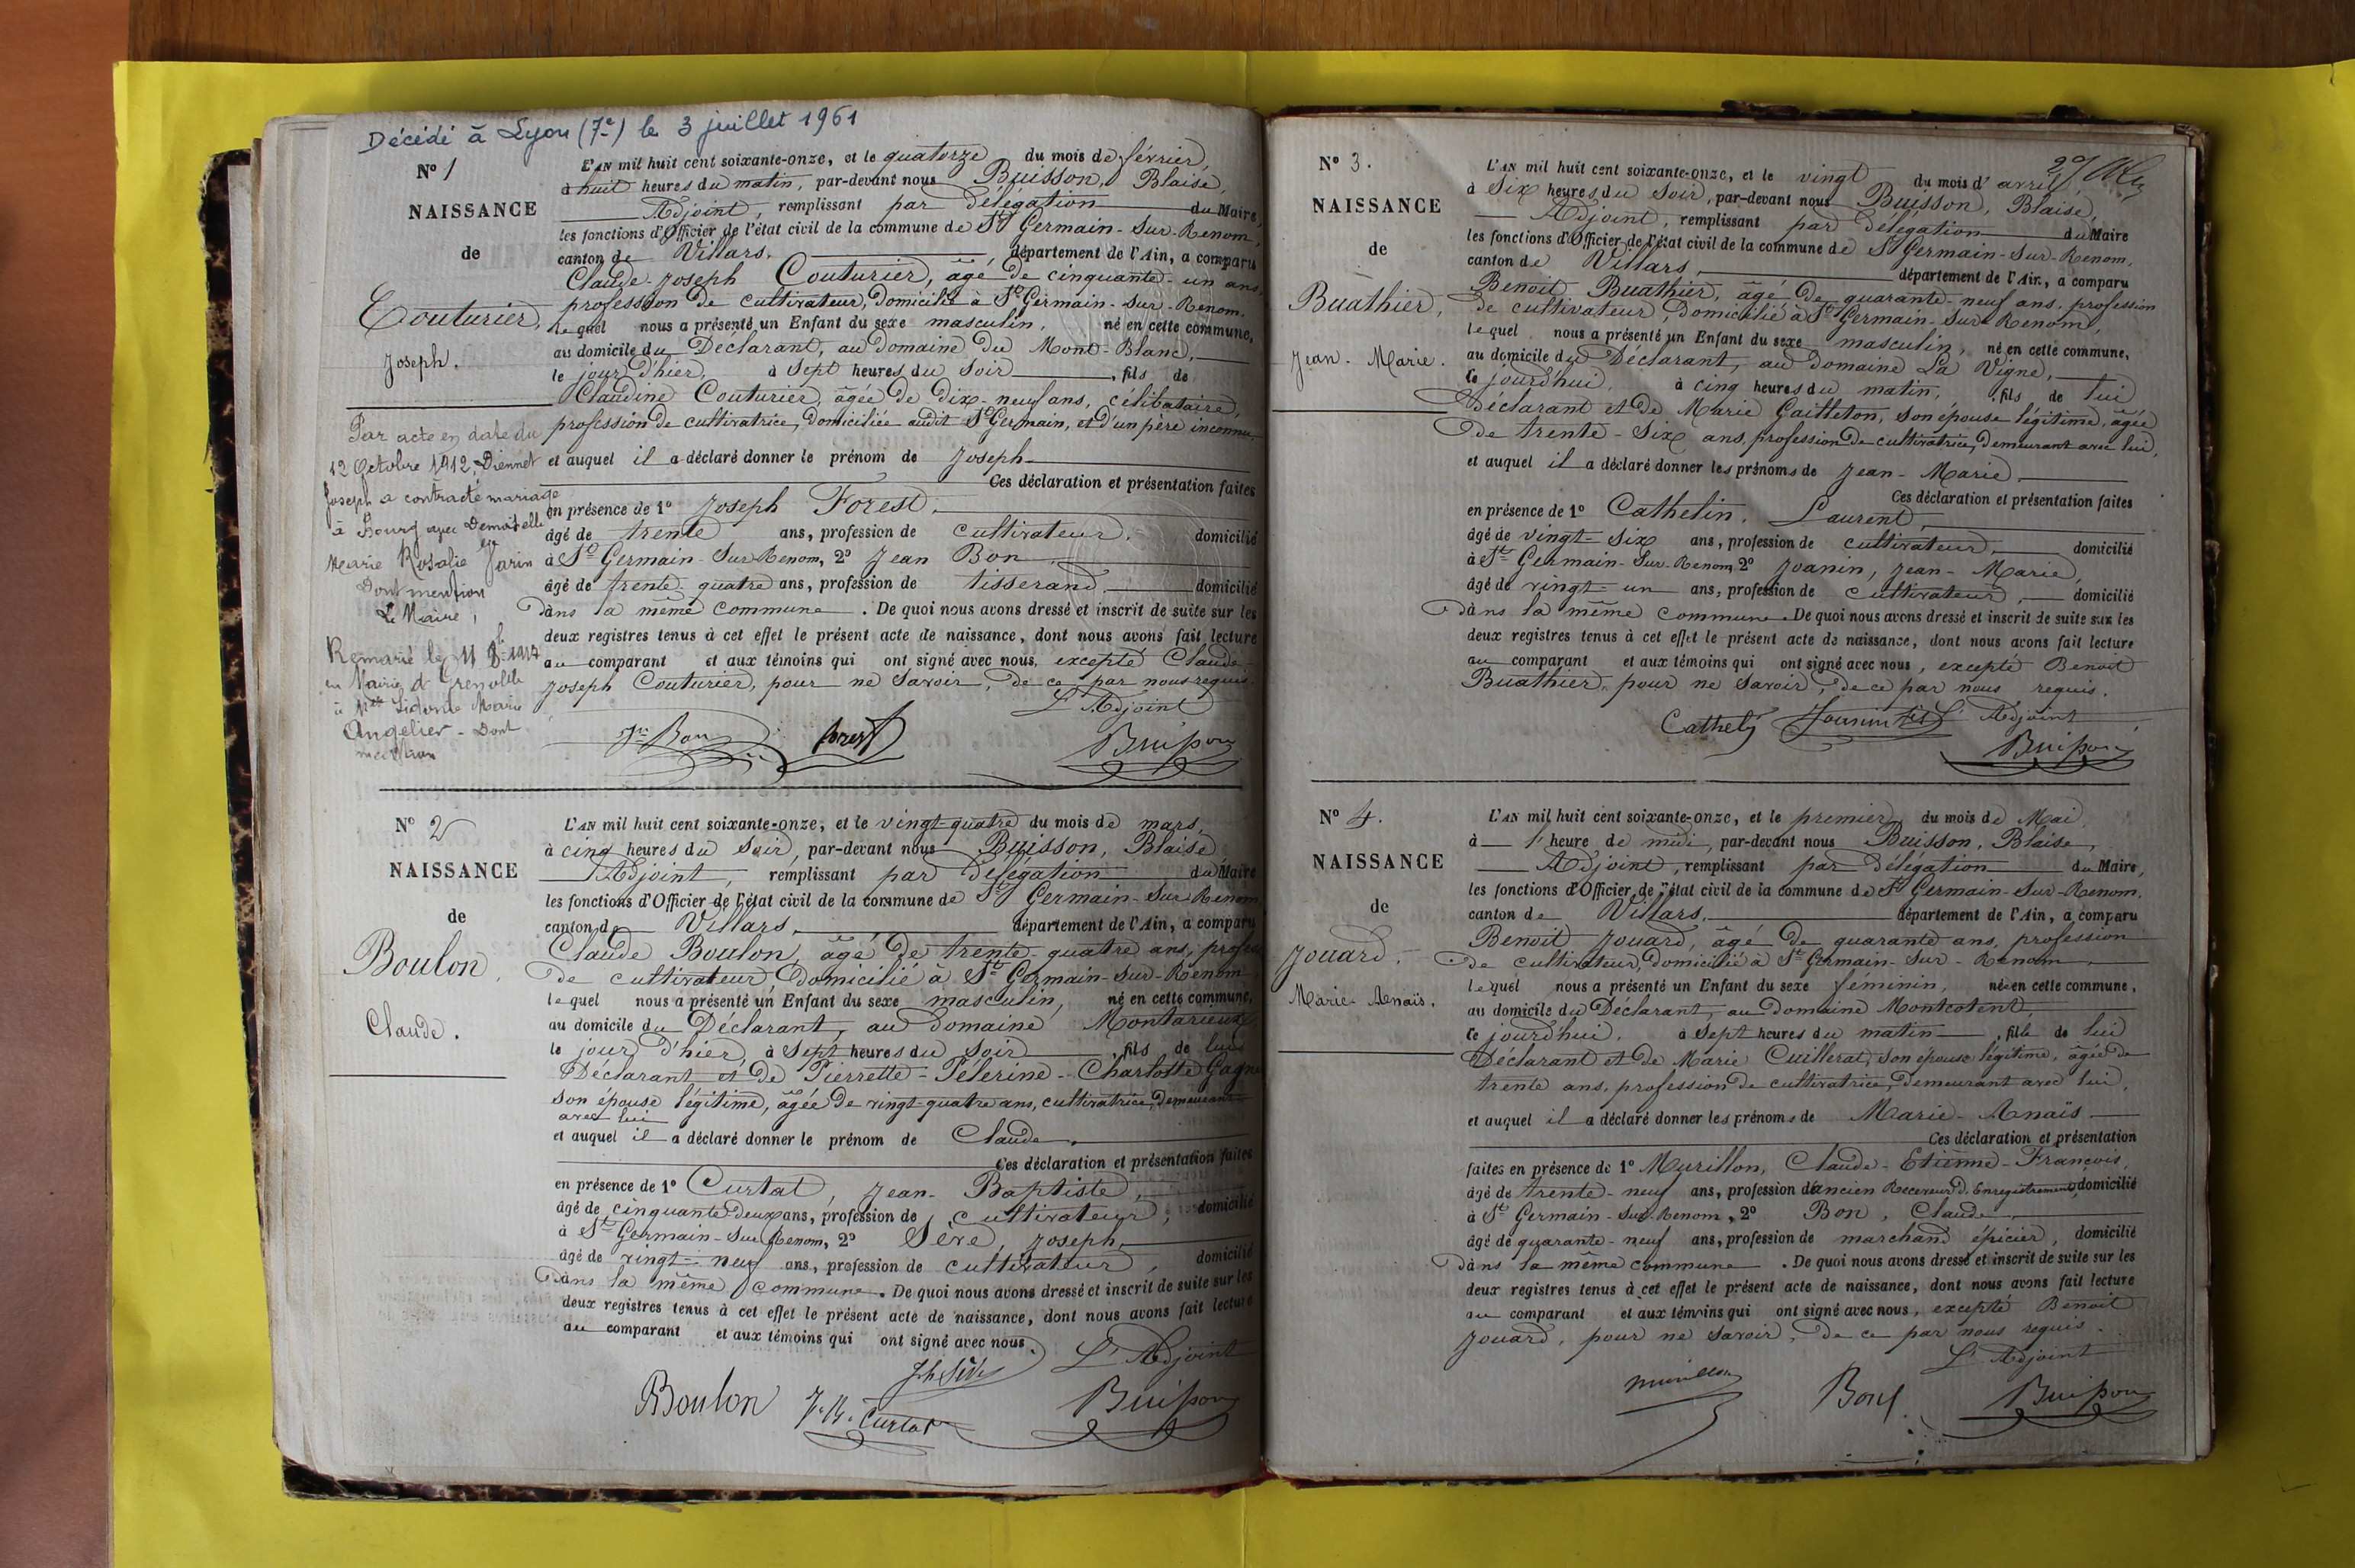 Décédé à Lyon (7e) le 3 juillet 1961
N° 1
NAISSANCE
de
Couturier,
Joseph.
Par acte en date du
12 Octobre 1912, Diennet
Joseph a contracté mariage
à Bourg avec Demoiselle
Marie Rosalie Jarin
Dont mention
Le Maire,
Remarié le 11
en Mairie de Grenoble
à Mlle Sidonie Marie
Angelier - Dont
mention
L'AN mil huit cent soixante-onze, et le quatorze du mois de février,
à huit heures du matin, par-devant nous Buisson, Blaise,
Adjoint, remplissant par délégation du Maire,
les fonctions d'Officier de l'état civil de la commune de St Germain-sur-Renom,
canton de Villars, département de l'Ain, a comparu
Claude-Joseph Couturier, âgé de cinquante-un ans,
profession de cultivateur, domicilié à St Germain-sur-Renom,
lequel nous a présenté un Enfant du sexe masculin, né en cette commune,
au domicile du Déclarant, au domaine du Mont-Blanc,
le jour d'hier, à sept heures du soir, fils de
Claudine Couturier, âgée de dix-neuf ans, célibataire,
profession de cultivatrice, domiciliée audit St Germain, et d'un père inconnu
et auquel il a déclaré donner le prénom de Joseph
Ces déclaration et présentation faites
en présence de 1° Joseph Forest,
âgé de trente ans, profession de cultivateur, domicilié
à St Germain-sur-Renom, 2° Jean Bon
âgé de trente-quatre ans, profession de tisserand, domicilié
dans la même commune. De quoi nous avons dressé et inscrit de suite sur les
deux registres tenus à cet effet le présent acte de naissance, dont nous avons fait lecture
au comparant et aux témoins qui ont signé avec nous, excepté Claude-
Joseph Couturier, pour ne savoir, de ce par nous requis.
L'Adjoint
Jn Bon forest Buisson
N° 2
NAISSANCE
de
Boulon,
Claude.
L'AN mil huit cent soixante-onze, et le vingt-quatre du mois de mars,
à cinq heures du soir, par-devant nous Buisson, Blaise
Adjoint, remplissant par délégation du Maire
les fonctions d'Officier de l'état civil de la commune de St Germain-sur-Renom
canton de Villars, département de l'Ain, a comparu
Claude Boulon, âgé de trente-quatre ans,
de cultivateur, domicilié à St Germain-sur-Renom
lequel nous a présenté un Enfant du sexe masculin, né en cette commune,
au domicile du Déclarant, au domaine Montarieux
le jour d'hier, à sept heures du soir, fils de lui
Déclarant et de Pierrette-Pélerine-Charlotte
son épouse légitime, âgée de vingt-quatre ans, cultivatrice, demeurant
avec lui
et auquel il a déclaré donner le prénom de Claude,
Ces déclaration et présentation faites
en présence de 1° Curtat, Jean-Baptiste,
âgé de cinquante-deux ans, profession de cultivateur, domicilié
à St Germain-sur-Renom, 2° Sève, Joseph,
âgé de vingt-neuf ans, profession de cultivateur, domicilié
dans la même commune. De quoi nous avons dressé et inscrit de suite sur les
deux registres tenus à cet effet le présent acte de naissance, dont nous avons fait lecture
au comparant et aux témoins qui ont signé avec nous.
L'Adjoint
Jh Sève
Boulon J. B. Curtat Buisson
N° 3.
NAISSANCE
de
Buathier,
Jean-Marie.
L'AN mil huit cent soixante-onze, et le vingt du mois d'avril,
à six heures du soir, par-devant nous Buisson, Blaise,
Adjoint, remplissant par délégation du Maire
les fonctions d'Officier de l'état civil de la commune de St Germain-sur-Renom,
canton de Villars, département de l'Ain, a comparu
Benoit Buathier, âgé de quarante-neuf ans, profession
de cultivateur, domicilié à St Germain-sur-Renom,
lequel nous a présenté un Enfant du sexe masculin, né en cette commune,
au domicile du Déclarant, au domaine La Vigne,
ce jourd'hui, à cinq heures du matin, fils de lui
Déclarant et de Marie Gailleton, son épouse légitime, âgée
de trente-six ans, profession de cultivatrice, demeurant avec lui,
et auquel il a déclaré donner les prénoms de Jean-Marie
Ces déclaration et présentation faites
en présence de 1° Cathelin, Laurent,
âgé de vingt-six ans, profession de cultivateur, domicilié
à St Germain-sur-Renom, 2° Joanin, Jean-Marie,
âgé de vingt-un ans, profession de cultivateur, domicilié
dans la même commune. De quoi nous avons dressé et inscrit de suite sur les
deux registres tenus à cet effet le présent acte de naissance, dont nous avons fait lecture
au comparant et aux témoins qui ont signé avec nous, excepté Benoit
Buathier, pour ne savoir, de ce par nous requis.
L'Adjoint
Buisson
N° 4.
NAISSANCE
de
Jouard.
Marie-Anaïs.
L'AN mil huit cent soixante-onze, et le premier du mois de Mai,
à 1 heure de midi, par-devant nous Buisson, Blaise,
Adjoint, remplissant par délégation du Maire,
les fonctions d'Officier de l'état civil de la commune de St Germain-sur-Renom,
canton de Villars, département de l'Ain, a comparu
Benoit Jouard, âgé de quarante ans, profession
de cultivateur, domicilié à St Germain-sur-Renom,
lequel nous a présenté un Enfant du sexe féminin, née en cette commune,
au domicile du Déclarant, au domaine Montcotent,
ce jourd'hui, à sept heures du matin, fille de lui
Déclarant et de Marie Cuillerat, son épouse légitime, âgée de
trente ans, profession de cultivatrice, demeurant avec lui,
et auquel il a déclaré donner les prénoms de Marie-Anaïs
Ces déclaration et présentation
faites en présence de 1° Murillon, Claude-Etienne-François,
âgé de trente-neuf ans, profession d'ancien Receveur d'Enregistrement, domicilié
à St Germain-sur-Renom, 2° Bon, Claude,
âgé de quarante-neuf ans, profession de marchand épicier, domicilié
dans la même commune. De quoi nous avons dressé et inscrit de suite sur les
deux registres tenus à cet effet le présent acte de naissance, dont nous avons fait lecture
au comparant et aux témoins qui ont signé avec nous, excepté Benoit
Jouard, pour ne savoir, de ce par nous requis.
L'Adjoint
Murillon Bon Buisson